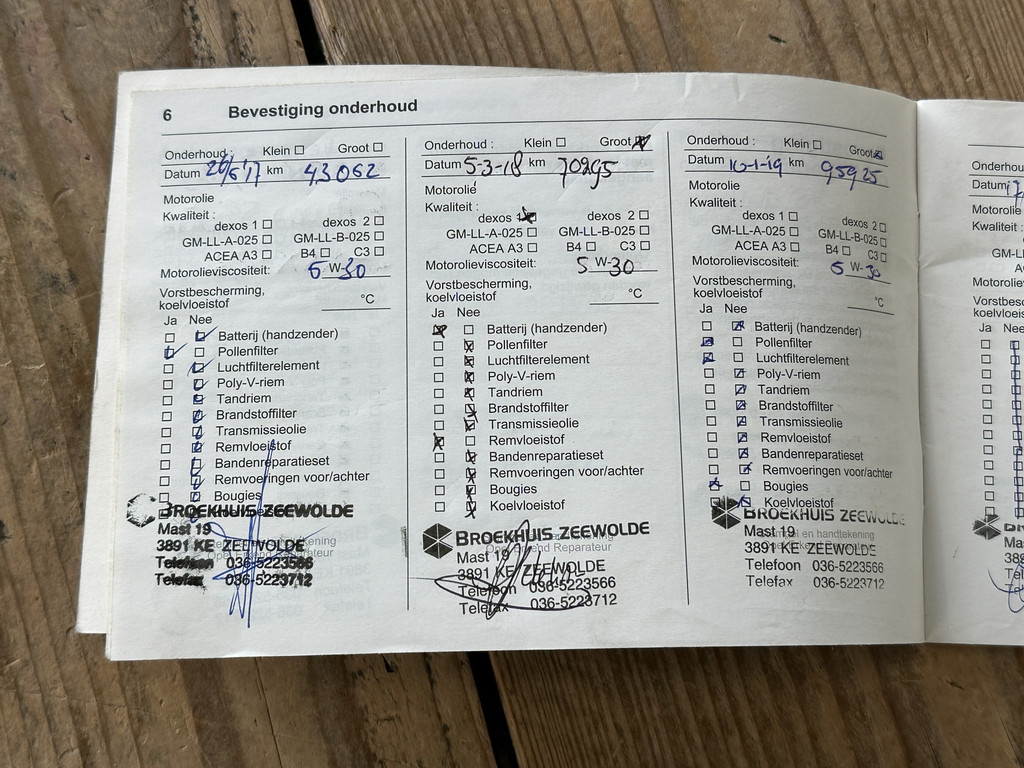 6 Bevestiging onderhoud
Onderhoud : Klein Groot
Datum 26/5'17 km 43062
Motorolie
Kwaliteit :
dexos 1 dexos 2
GM-LL-A-025 GM-LL-B-025
ACEA A3 B4 C3
Motorolieviscositeit: 5 W-30
Vorstbescherming,
koelvloeistof °C
Ja Nee
Batterij (handzender)
Pollenfilter
Luchtfilterelement
Poly-V-riem
Tandriem
Brandstoffilter
Transmissieolie
Remvloeistof
Bandenreparatieset
Remvoeringen voor/achter
Bougies
BROEKHUIS ZEEWOLDE
Mast 19
3891 KE ZEEWOLDE
Opel Erkend Reparateur
Telefoon 036-5223566
Telefax 036-5223712
Onderhoud : Klein Groot
Datum 5-3-18 km 70295
Motorolie
Kwaliteit :
dexos 1 dexos 2
GM-LL-A-025 GM-LL-B-025
ACEA A3 B4 C3
Motorolieviscositeit: 5 W-30
Vorstbescherming,
koelvloeistof °C
Ja Nee
Batterij (handzender)
Pollenfilter
Luchtfilterelement
Poly-V-riem
Tandriem
Brandstoffilter
Transmissieolie
Remvloeistof
Bandenreparatieset
Remvoeringen voor/achter
Bougies
Koelvloeistof
BROEKHUIS ZEEWOLDE
Opel Erkend Reparateur
Mast 19
3891 KE ZEEWOLDE
Telefoon 036-5223566
Telefax 036-5223712
Onderhoud : Klein Groot
Datum 10-1-19 km 95925
Motorolie
Kwaliteit :
dexos 1 dexos 2
GM-LL-A-025 GM-LL-B-025
ACEA A3 B4 C3
Motorolieviscositeit: 5 W-30
Vorstbescherming,
koelvloeistof °C
Ja Nee
Batterij (handzender)
Pollenfilter
Luchtfilterelement
Poly-V-riem
Tandriem
Brandstoffilter
Transmissieolie
Remvloeistof
Bandenreparatieset
Remvoeringen voor/achter
Bougies
Koelvloeistof
BROEKHUIS ZEEWOLDE
Mast 19
Stempel en handtekening
3891 KE ZEEWOLDE
Telefoon 036-5223566
Telefax 036-5223712
Onderhoud
Datum
Motorolie
Kwaliteit :
Ja Nee